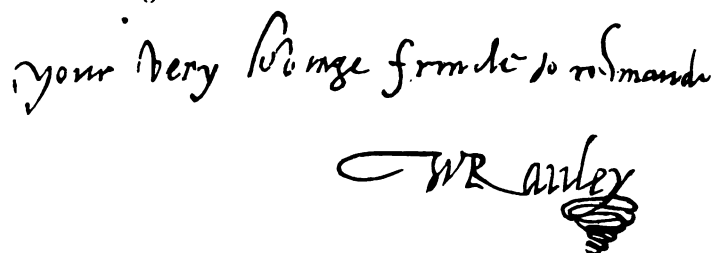 your very lovinge frinde to commande
WRauley